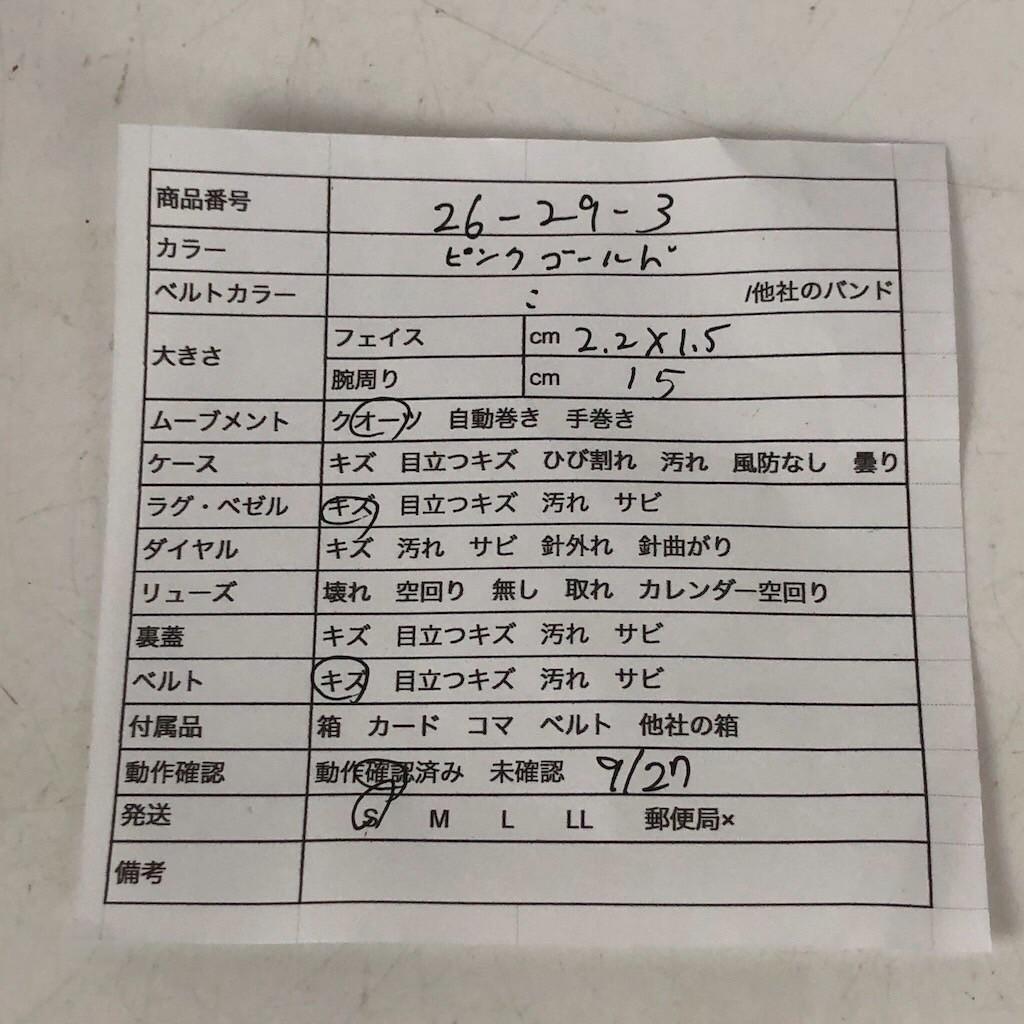 商品番号 26-29-3
カラー ピンクゴールド
ベルトカラー /他社のバンド
大きさ フェイス cm 2.2×1.5
腕周り cm 15
ムーブメント クオーツ 自動巻き 手巻き
ケース キズ 目立つキズ ひび割れ 汚れ 風防なし 曇り
ラグ・ベゼル キズ 目立つキズ 汚れ サビ
ダイヤル キズ 汚れ サビ 針外れ 針曲がり
リューズ 壊れ 空回り 無し 取れ カレンダー空回り
裏蓋 キズ 目立つキズ 汚れ サビ
ベルト キズ 目立つキズ 汚れ サビ
付属品 箱 カード コマ ベルト 他社の箱
動作確認 動作確認済み 未確認 9/27
発送 S M L LL 郵便局×
備考